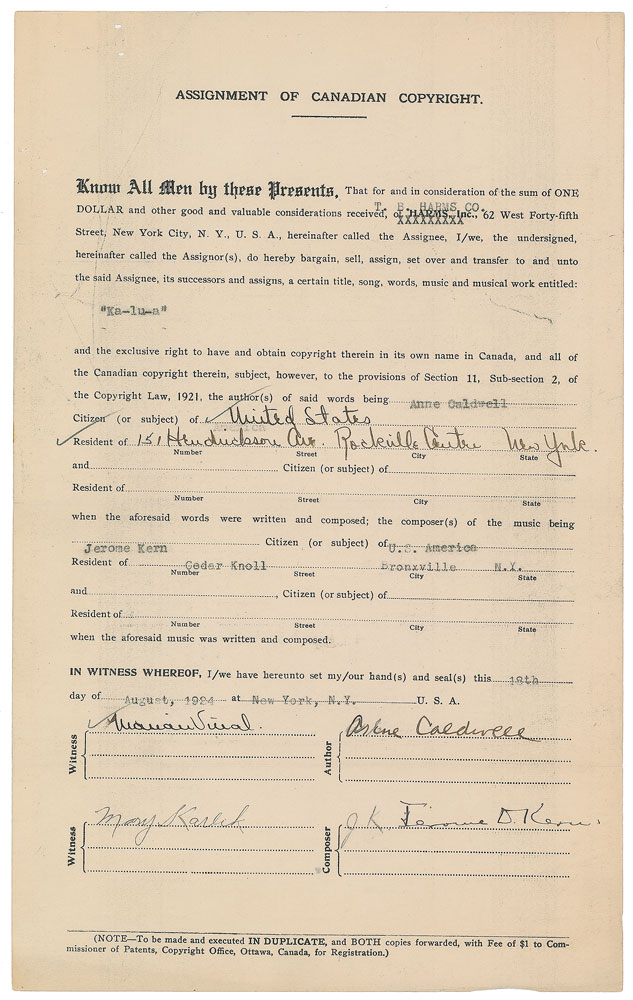 ASSIGNMENT OF CANADIAN COPYRIGHT.
Know All Men by these Presents, That for and in consideration of the sum of ONE
T. B. HARMS CO.
DOLLAR and other good and valuable considerations received, of HARMS, Inc., 62 West Forty-fifth
XXXXXXXXX
Street, New York City, N. Y., U. S. A., hereinafter called the Assignee, I/we, the undersigned,
hereinafter called the Assignor(s), do hereby bargain, sell, assign, set over and transfer to and unto
the said Assignee, its successors and assigns, a certain title, song, words, music and musical work entitled:
"Ka-lu-a"
and the exclusive right to have and obtain copyright therein in its own name in Canada, and all of
the Canadian copyright therein, subject, however, to the provisions of Section 11, Sub-section 2, of
the Copyright Law, 1921, the author(s) of said words being Anne Caldwell
Citizen (or subject) of United States
Resident of 151 Hendrickson Ave. Rockville Centre New York.
Number Street City State
and Citizen (or subject) of
Resident of
Number Street City State
when the aforesaid words were written and composed; the composer(s) of the music being
Jerome Kern Citizen (or subject) of U.S. America
Resident of Cedar Knoll Bronxville N.Y.
Number Street City State
and , Citizen (or subject) of
Resident of
Number Street City State
when the aforesaid music was written and composed.
IN WITNESS WHEREOF, I/we have hereunto set my/our hand(s) and seal(s) this 18th
day of August, 1924 at New York, N.Y. U. S. A.
Witness Marian Author Anne Caldwell
Witness Mary Composer J.K. Jerome D. Kern.
(NOTE—To be made and executed IN DUPLICATE, and BOTH copies forwarded, with Fee of $1 to Com-
missioner of Patents, Copyright Office, Ottawa, Canada, for Registration.)